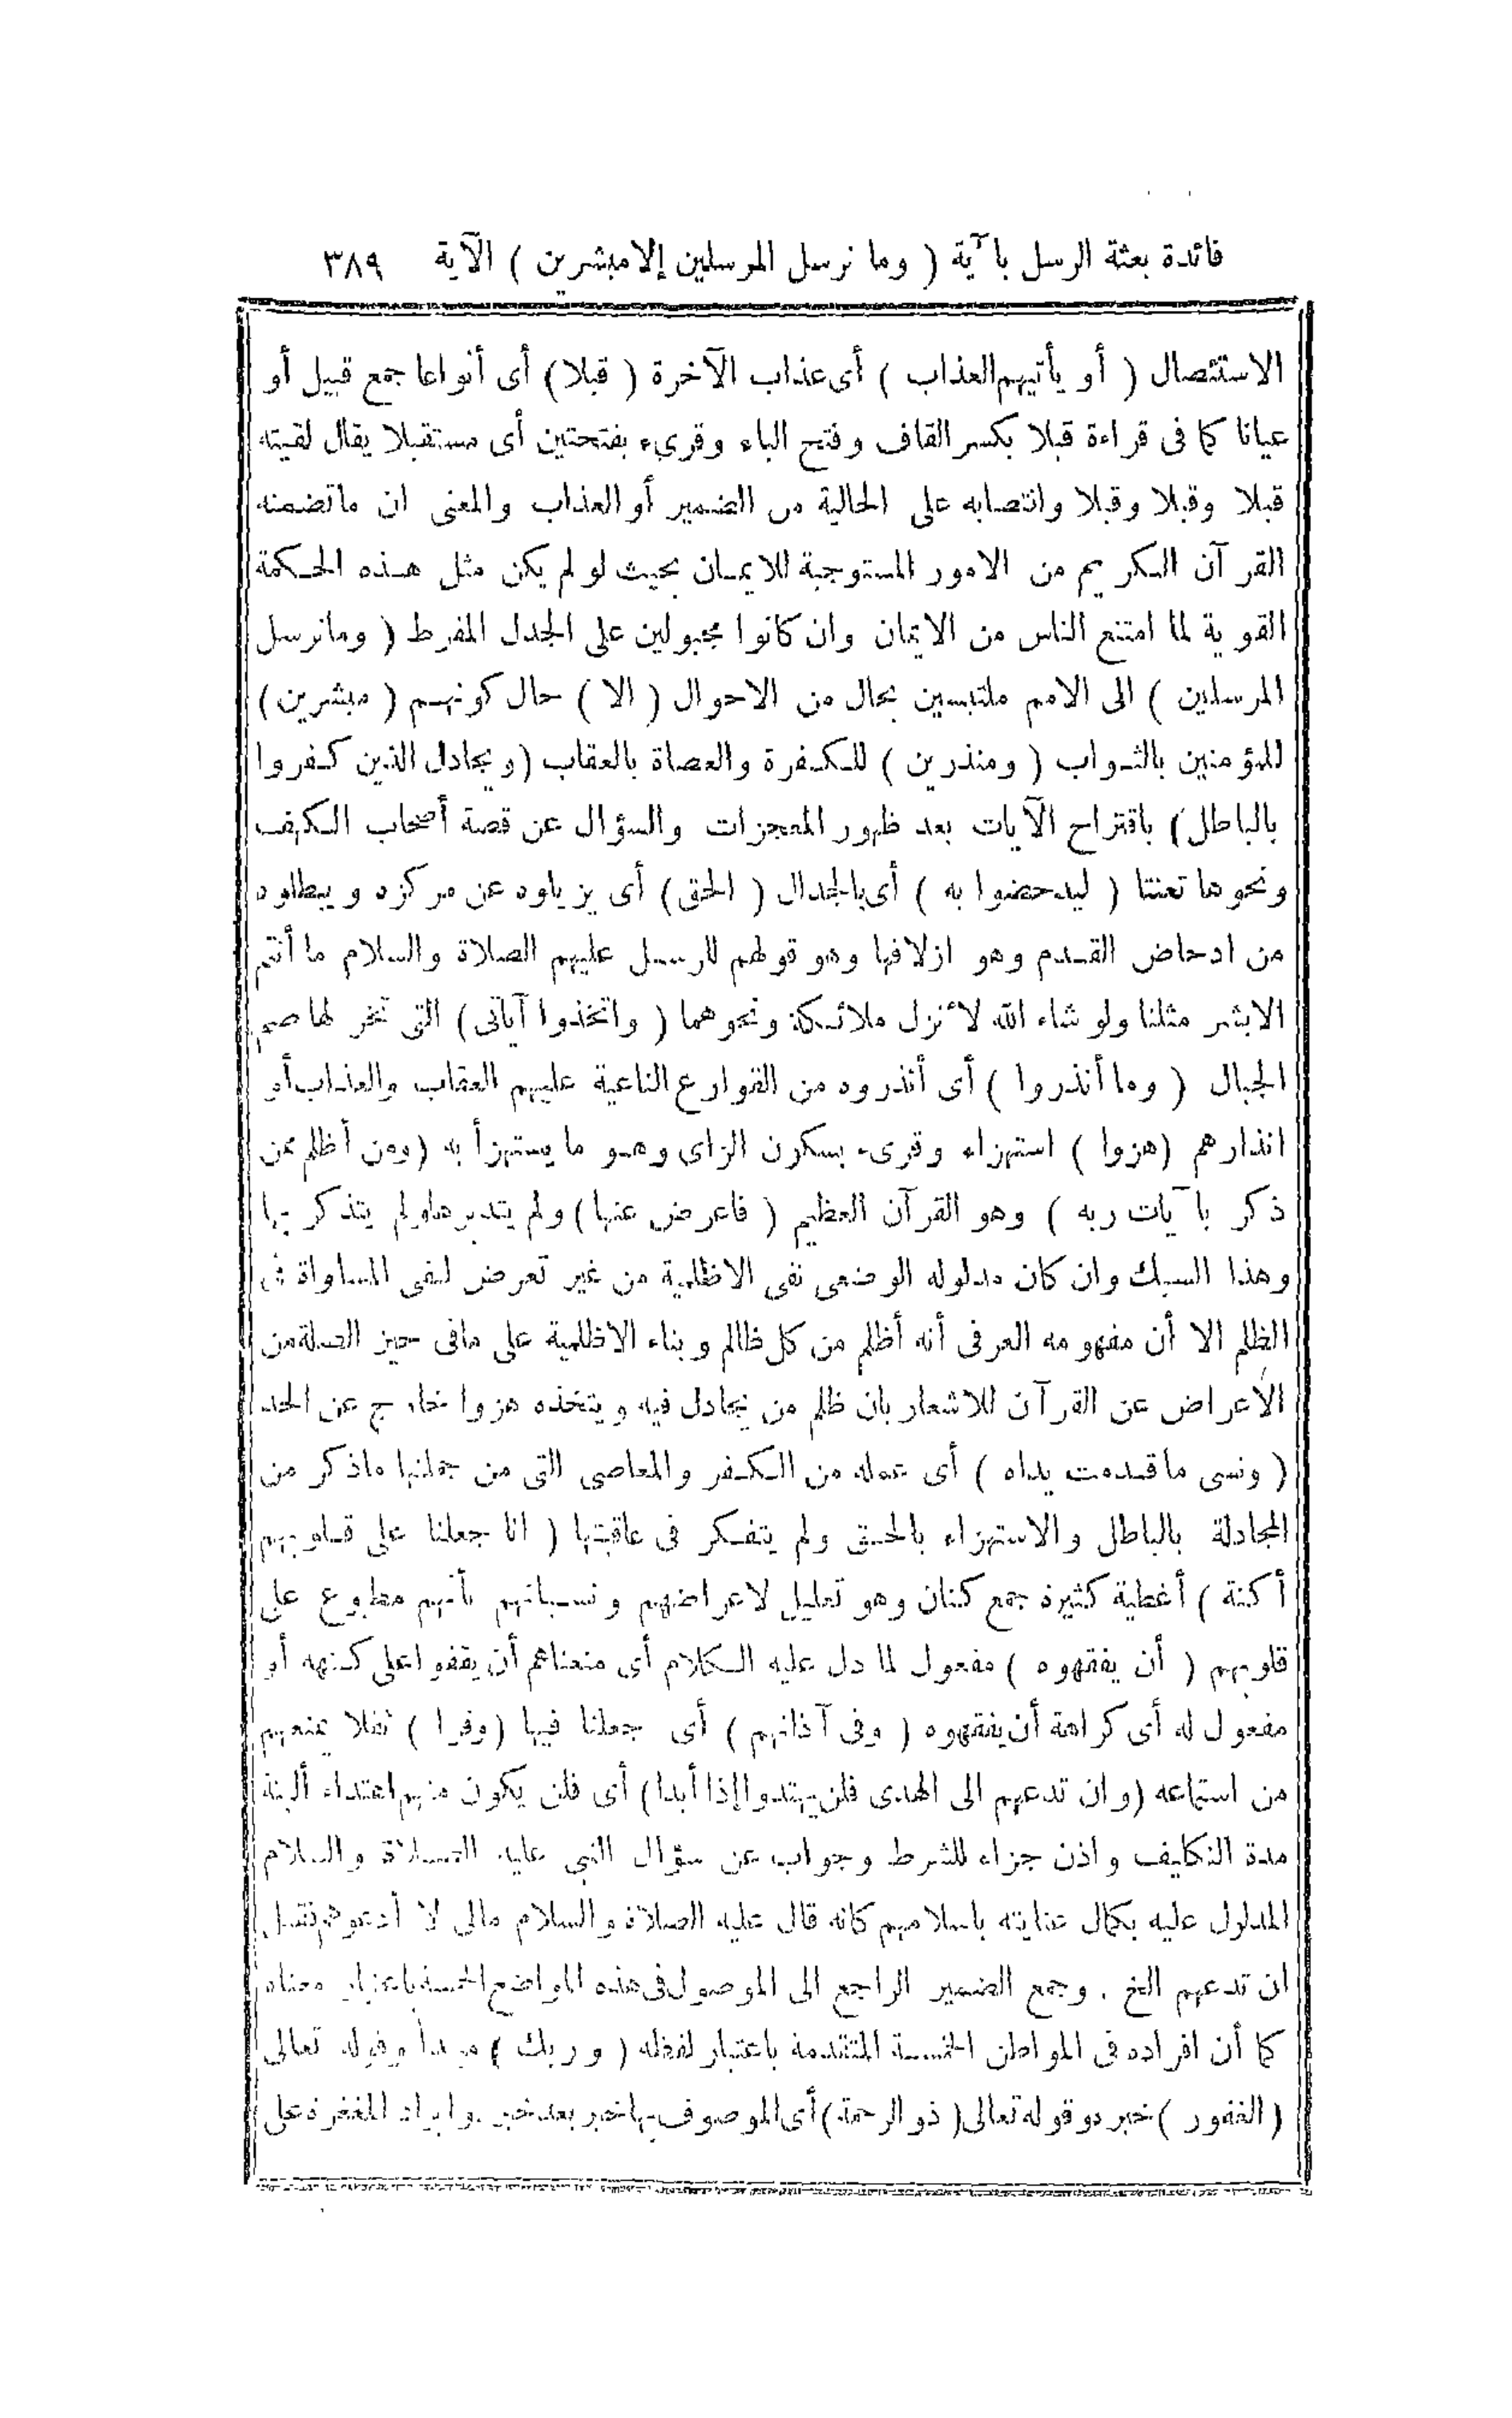 فائدة بعثة الرسل بآية ( وما نرسل المرسلين إلا مبشرين ) الآية ٣٨٩
الاستئصال ( أو يأتيهم العذاب ) أى عذاب الآخرة ( قبلا ) أى أنواعا جمع قبيل أو
عيانا كما فى قراءة قبلا بكسر القاف وفتح الباء وقرىء بفتحتين أى مستقبلا يقال لقيته
قبلا وقبلا وقبلا وانتصابه على الحالية من الضمير أو العذاب والمعنى ان ماتضمنه
القرآن الكريم من الامور المستوجبة للايمان بحيث لو لم يكن مثل هذه الحكمة
القوية لما امتنع الناس من الايمان وان كانوا مجبولين على الجدل المفرط ( ومانرسل
المرسلين ) الى الامم ملتبسين بحال من الاحوال ( الا ) حال كونهم ( مبشرين )
للمؤمنين بالثواب ( ومنذرين ) للكفرة والعصاة بالعقاب ( ويجادل الذين كفروا
بالباطل ) باقتراح الآيات بعد ظهور المعجزات والسؤال عن قصة أصحاب الكهف
ونحوها تعنتا ( ليدحضوا به ) أى بالجدال ( الحق ) أى يزيلوه عن مركزه ويبطلوه
من ادحاض القدم وهو ازلاقها وهو قولهم للرسل عليهم الصلاة والسلام ما أنتم
الابشر مثلنا ولو شاء الله لأنزل ملائكة ونحوهما ( واتخذوا آياتى ) التى تخر لها صم
الجبال ( وما أنذروا ) أى أنذروه من القوارع الناعية عليهم العقاب والعذاب أو
انذارهم ( هزوا ) استهزاء وقرىء بسكون الزاى وهو ما يستهزأ به ( ومن أظلم ممن
ذكر بآيات ربه ) وهو القرآن العظيم ( فاعرض عنها ) ولم يتدبرها ولم يتذكر بها
وهذا السبك وان كان مدلوله الوضعى نفى الاظلمية من غير تعرض لنفى المساواة فى
الظلم الا أن مفهومه العرفى أنه أظلم من كل ظالم وبناء الاظلمية على مافى حيز الصلة من
الأعراض عن القرآن للاشعار بان ظلم من يجادل فيه ويتخذه هزوا خارج عن الحد
( ونسى ماقدمت يداه ) أى عمله من الكفر والمعاصى التى من جملتها ماذكر من
المجادلة بالباطل والاستهزاء بالحق ولم يتفكر فى عاقبتها ( انا جعلنا على قلوبهم
أكنة ) أغطية كثيرة جمع كنان وهو تعليل لاعراضهم ونسيانهم بأنهم مطبوع على
قلوبهم ( أن يفقهوه ) مفعول لما دل عليه الكلام أى منعناهم أن يقفوا على كنهه أو
مفعول له أى كراهة أن يفقهوه ( وفى آذانهم ) أى جعلنا فيها ( وقرا ) ثقلا يمنعهم
من استماعه ( وان تدعهم الى الهدى فلن يهتدوا إذا أبدا ) أى فلن يكون منهم اهتداء ألبتة
مدة التكليف واذن جزاء للشرط وجواب عن سؤال النبى عليه الصلاة والسلام
المدلول عليه بكمال عنايته باسلامهم كانه قال عليه الصلاة والسلام مالى لا أدعوهم فقيل
ان تدعهم الخ . وجمع الضمير الراجع الى الموصول فى هذه المواضع الخمسة باعتبار معناه
كما أن افراده فى المواطن الخمسة المتقدمة باعتبار لفظه ( وربك ) مبتدأ وقوله تعالى
( الغفور ) خبره وقوله تعالى ( ذو الرحمة ) أى الموصوف بها خبر بعد خبر . وايراد المغفرة على